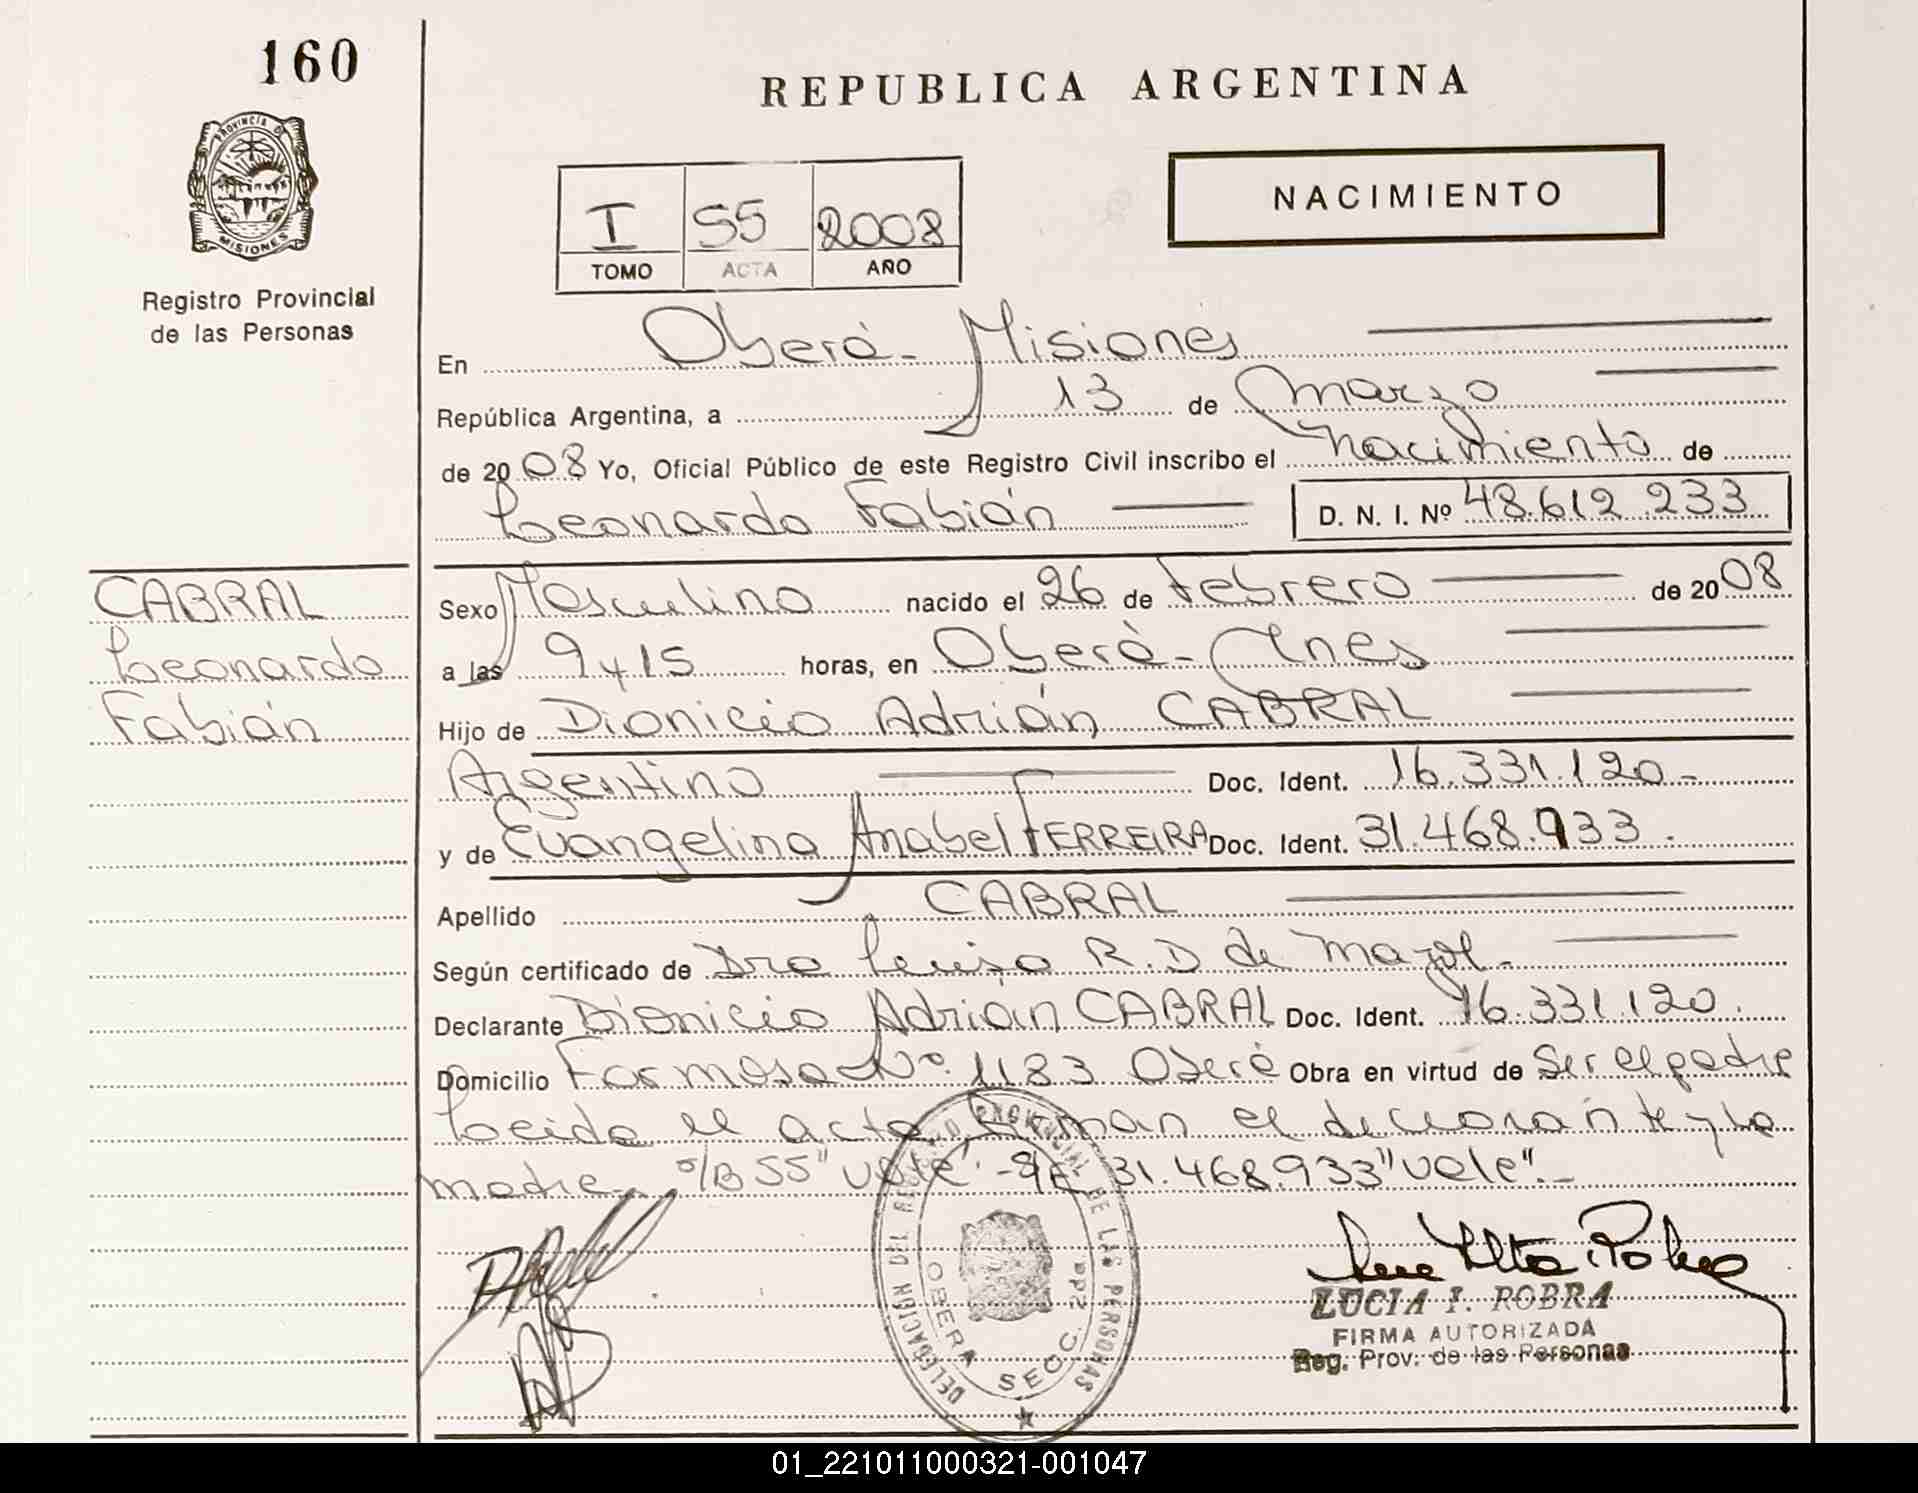 160
REPUBLICA ARGENTINA
PROVINCIA DE
MISIONES
Registro Provincial
de las Personas
I 55 2008
TOMO ACTA AÑO
NACIMIENTO
En Oberá - Misiones
República Argentina, a 13 de Marzo
de 2008 Yo, Oficial Público de este Registro Civil inscribo el nacimiento de
Leonardo Fabián D. N. I. Nº 48.612.233
CABRAL
Leonardo
Fabián
Sexo Masculino nacido el 26 de Febrero de 2008
a las 9 y 15 horas, en Oberá - Mnes
Hijo de Dionicio Adrián CABRAL
Argentino Doc. Ident. 16.331.120-
y de Evangelina Anabel FERREIRA Doc. Ident. 31.468.933.
Apellido CABRAL
Según certificado de Dra Luisa R. D de
Declarante Dionicio Adrián CABRAL Doc. Ident. 16.331.120.
Domicilio Formosa Nº 1183 Oberá Obra en virtud de Ser el padre
Leida el acta Firman el declarante y la
madre.- s/B 55 "vale" - 31.468.933 "vale".-
DELEGACIÓN DEL REGISTRO PROVINCIAL DE LAS PERSONAS
OBERA SECC. 2da
LUCIA I. ROBRA
FIRMA AUTORIZADA
Reg. Prov. de las Personas
01_221011000321-001047